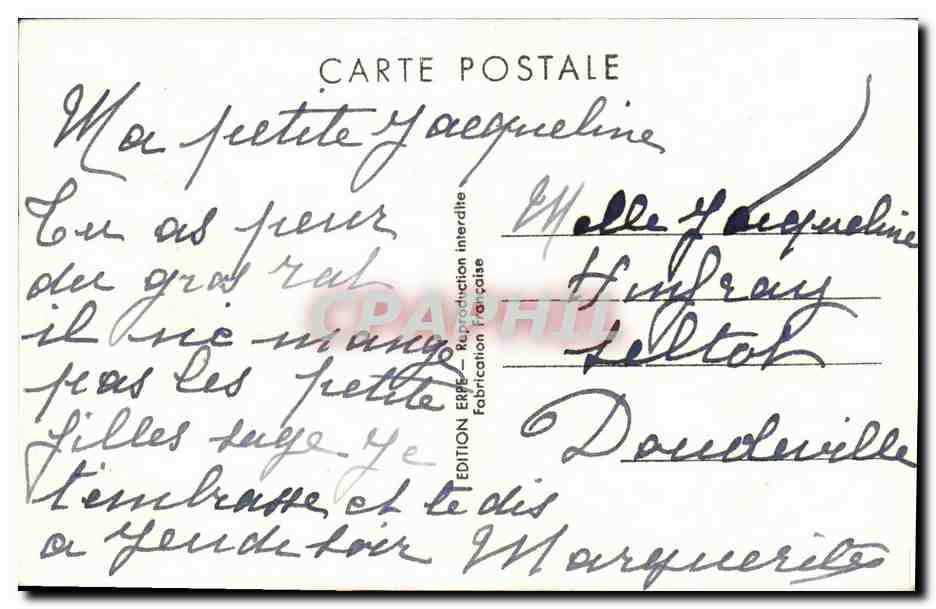 CARTE POSTALE
Ma petite Jacqueline
Tu as peur
du gros rat
il ne mange
pas les petite
filles sage Je
t'embrasse et te dis
a Jeudi soir Marguerite
EDITION ERPE — Reproduction interdite
Fabrication Française
Melle Jacqueline
Hinfray
Seltot
Doudeville
CPAPHIL